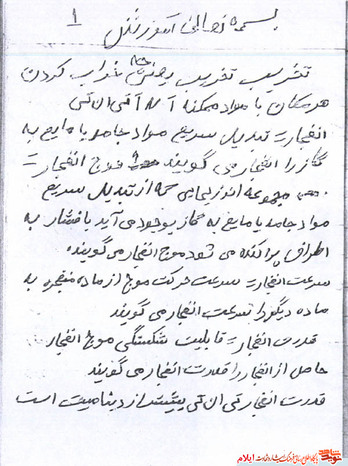 ۱
بسمه تعالی آموزش
تخریب تخریب یعنی خراب کردن
هر مکان با مواد
انفجار = تبدیل سریع مواد جامد یا مایع به
گاز را انفجار می گویند موج انفجار =
مجموعه انرژیهایی که از تبدیل سریع
مواد جامد یا مایع به گاز بوجود می آید با فشار به
اطراف پراکنده می شود موج انفجار می گویند
سرعت انفجار = سرعت حرکت موج از ماده منفجره به
ماده دیگر را سرعت انفجار می گویند
قدرت انفجار = قابلیت شکستگی موج انفجار
حاصل از انفجار را قدرت انفجار می گویند
قدرت انفجار تی ان تی بیشتر از دینامیت است
ایلام